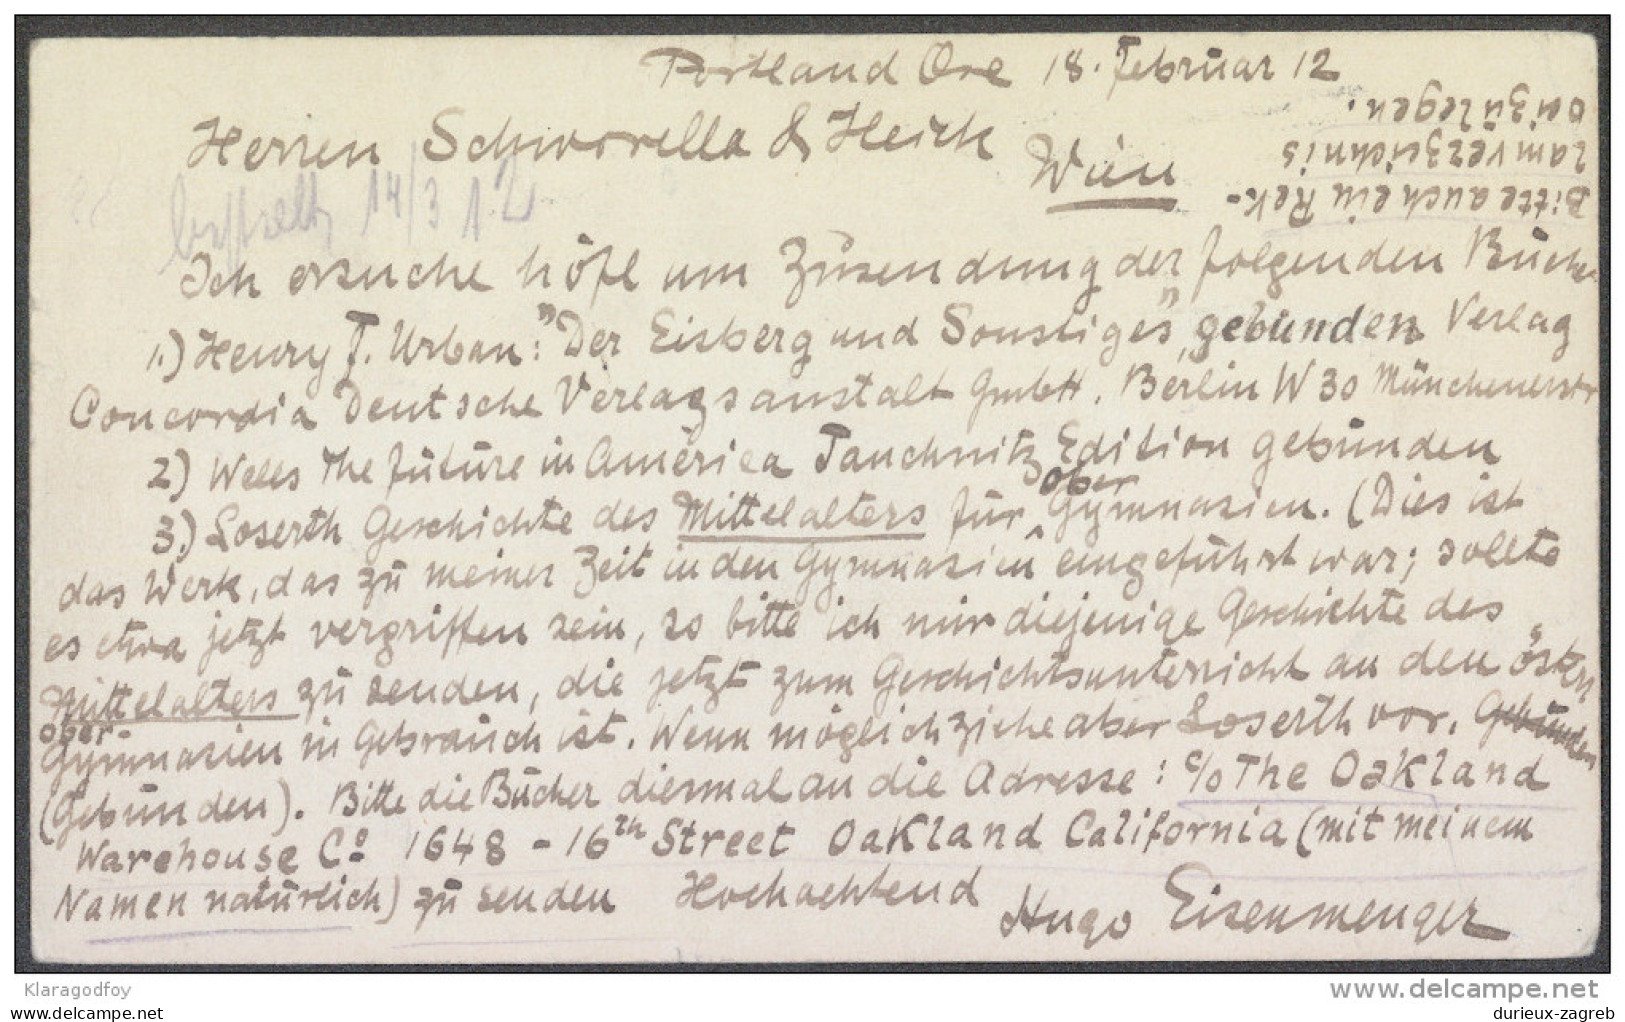 Portland Ore 18. Februar 12
Herren Schworella & Heick
Wien
Bitte auch ein Rek-
lamverzeichnis
beizulegen.
bestellt 14/3 12
Ich ersuche höfl um Zusendung der folgenden Bücher
1.) Henry F. Urban: "Der Eisberg und Sonstiges", gebunden Verlag
Concordia Deutsche Verlagsanstalt GmbH. Berlin W 30 Münchenerstr
2) Wells The future in America Tauchnitz Edition gebunden
3.) Loserth Geschichte des Mittelalters für Obergymnasien. (Dies ist
das Werk, das zu meiner Zeit in den Gymnasien eingeführt war; sollte
es etwa jetzt vergriffen sein, so bitte ich mir diejenige Geschichte des
Mittelalters zu senden, die jetzt zum Geschichtsunterricht an den österr.
Ober-Gymnasien in Gebrauch ist. Wenn möglich ziehe aber Loserth vor. Gebunden
(Gebunden). Bitte die Bücher diesmal an die Adresse: c/o The Oakland
Warehouse Co 1648 - 16th Street Oakland California (mit meinem
Namen natürlich) zu senden Hochachtend
Hugo Eisenmenger
Klaragodfoy
www.delcampe.net
www.delcampe.net
durieux-zagreb